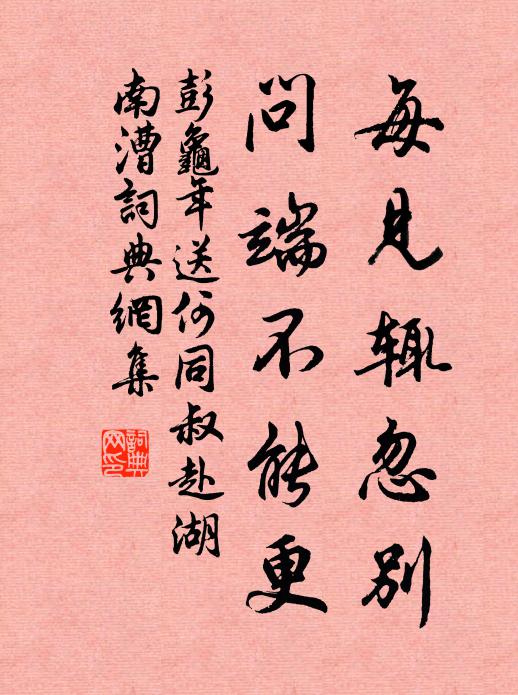 每見辄忽別
問端不能更
彭龜年送何同叔赴湖
南漕詞典網集
詞典
网印